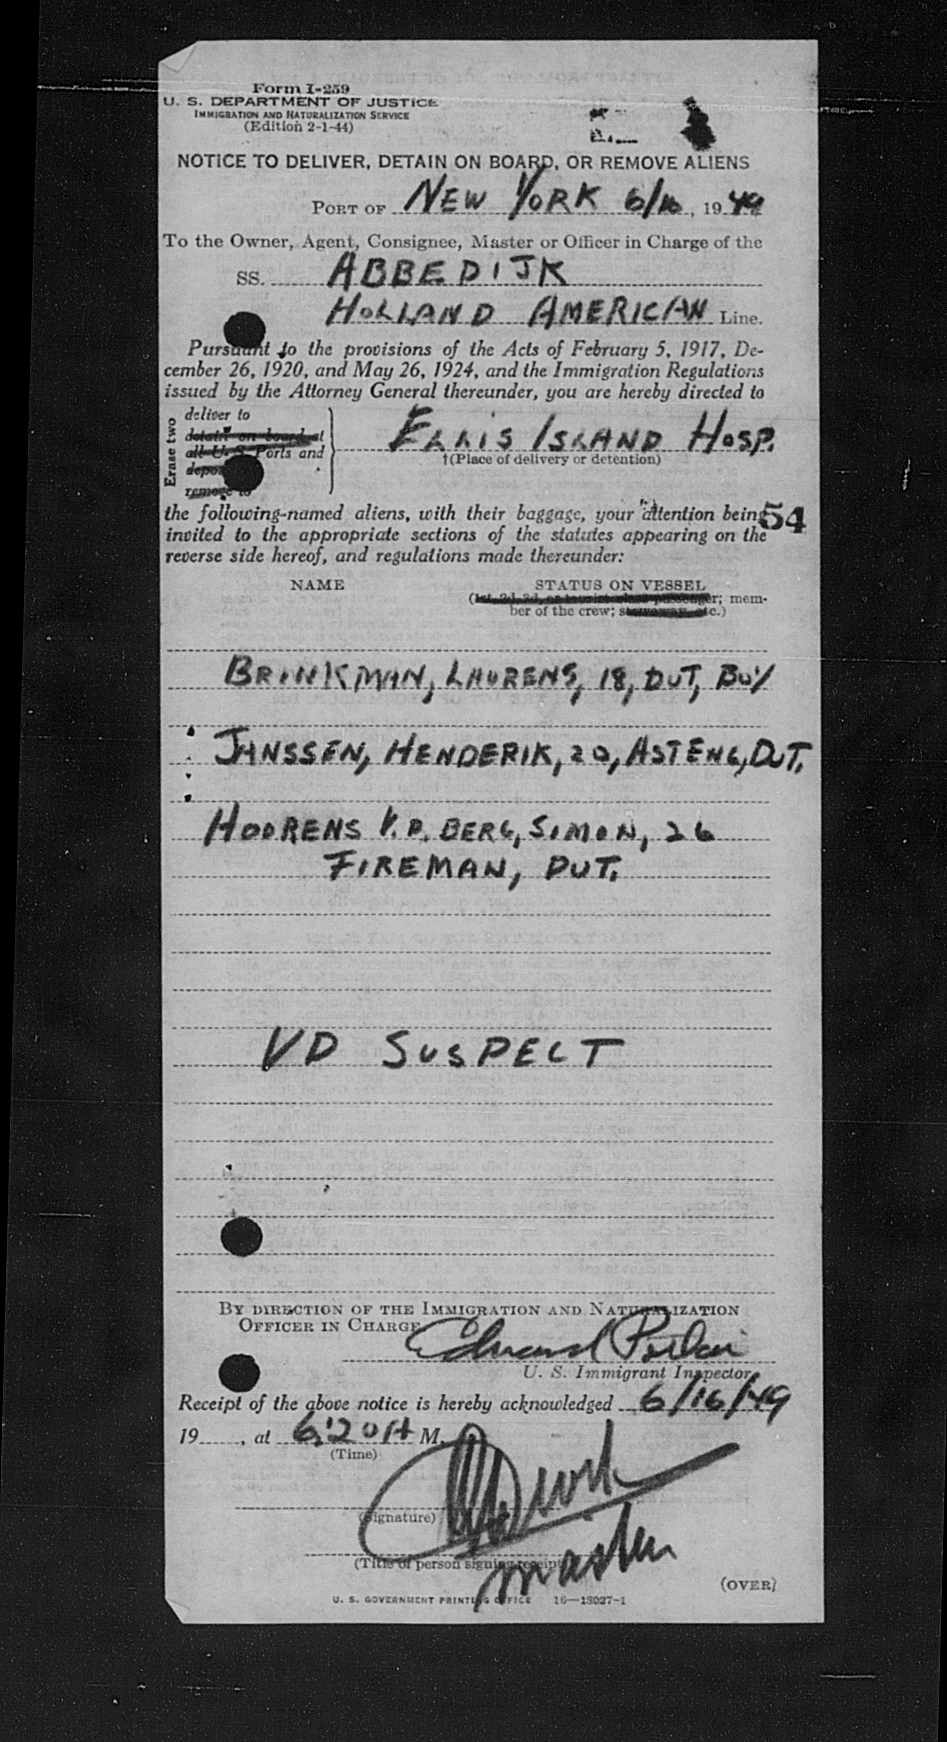 Form I-259
U. S. DEPARTMENT OF JUSTICE
IMMIGRATION AND NATURALIZATION SERVICE
(Edition 2-1-44)
NOTICE TO DELIVER, DETAIN ON BOARD, OR REMOVE ALIENS
PORT OF NEW YORK 6/16, 1949
To the Owner, Agent, Consignee, Master or Officer in Charge of the
SS. ABBEDIJK
HOLLAND AMERICAN Line.
Pursuant to the provisions of the Acts of February 5, 1917, De-
cember 26, 1920, and May 26, 1924, and the Immigration Regulations
issued by the Attorney General thereunder, you are hereby directed to
Erase two
deliver to
detain on board at
all U. S. Ports and
remove to
ELLIS ISLAND HOSP.
†(Place of delivery or detention)
the following-named aliens, with their baggage, your attention being
54
invited to the appropriate sections of the statutes appearing on the
reverse side hereof, and regulations made thereunder:
NAME STATUS ON VESSEL
(1st, 2d, 3d, or tourist class passenger; mem-
ber of the crew; stowaway, etc.)
BRINKMAN, LAURENS, 18, DUT, BOY
JANSSEN, HENDERIK, 20, ASTENG, DUT.
HOORENS V.D. BERG, SIMON, 26
FIREMAN, DUT.
VD SUSPECT
BY DIRECTION OF THE IMMIGRATION AND NATURALIZATION
OFFICER IN CHARGE
Edward
U. S. Immigrant Inspector
Receipt of the above notice is hereby acknowledged 6/16/49
19 , at 6:20 A M.
(Time)
(Signature)
master
(Title of person signing receipt)
(OVER)
U. S. GOVERNMENT PRINTING OFFICE 16—13027-1